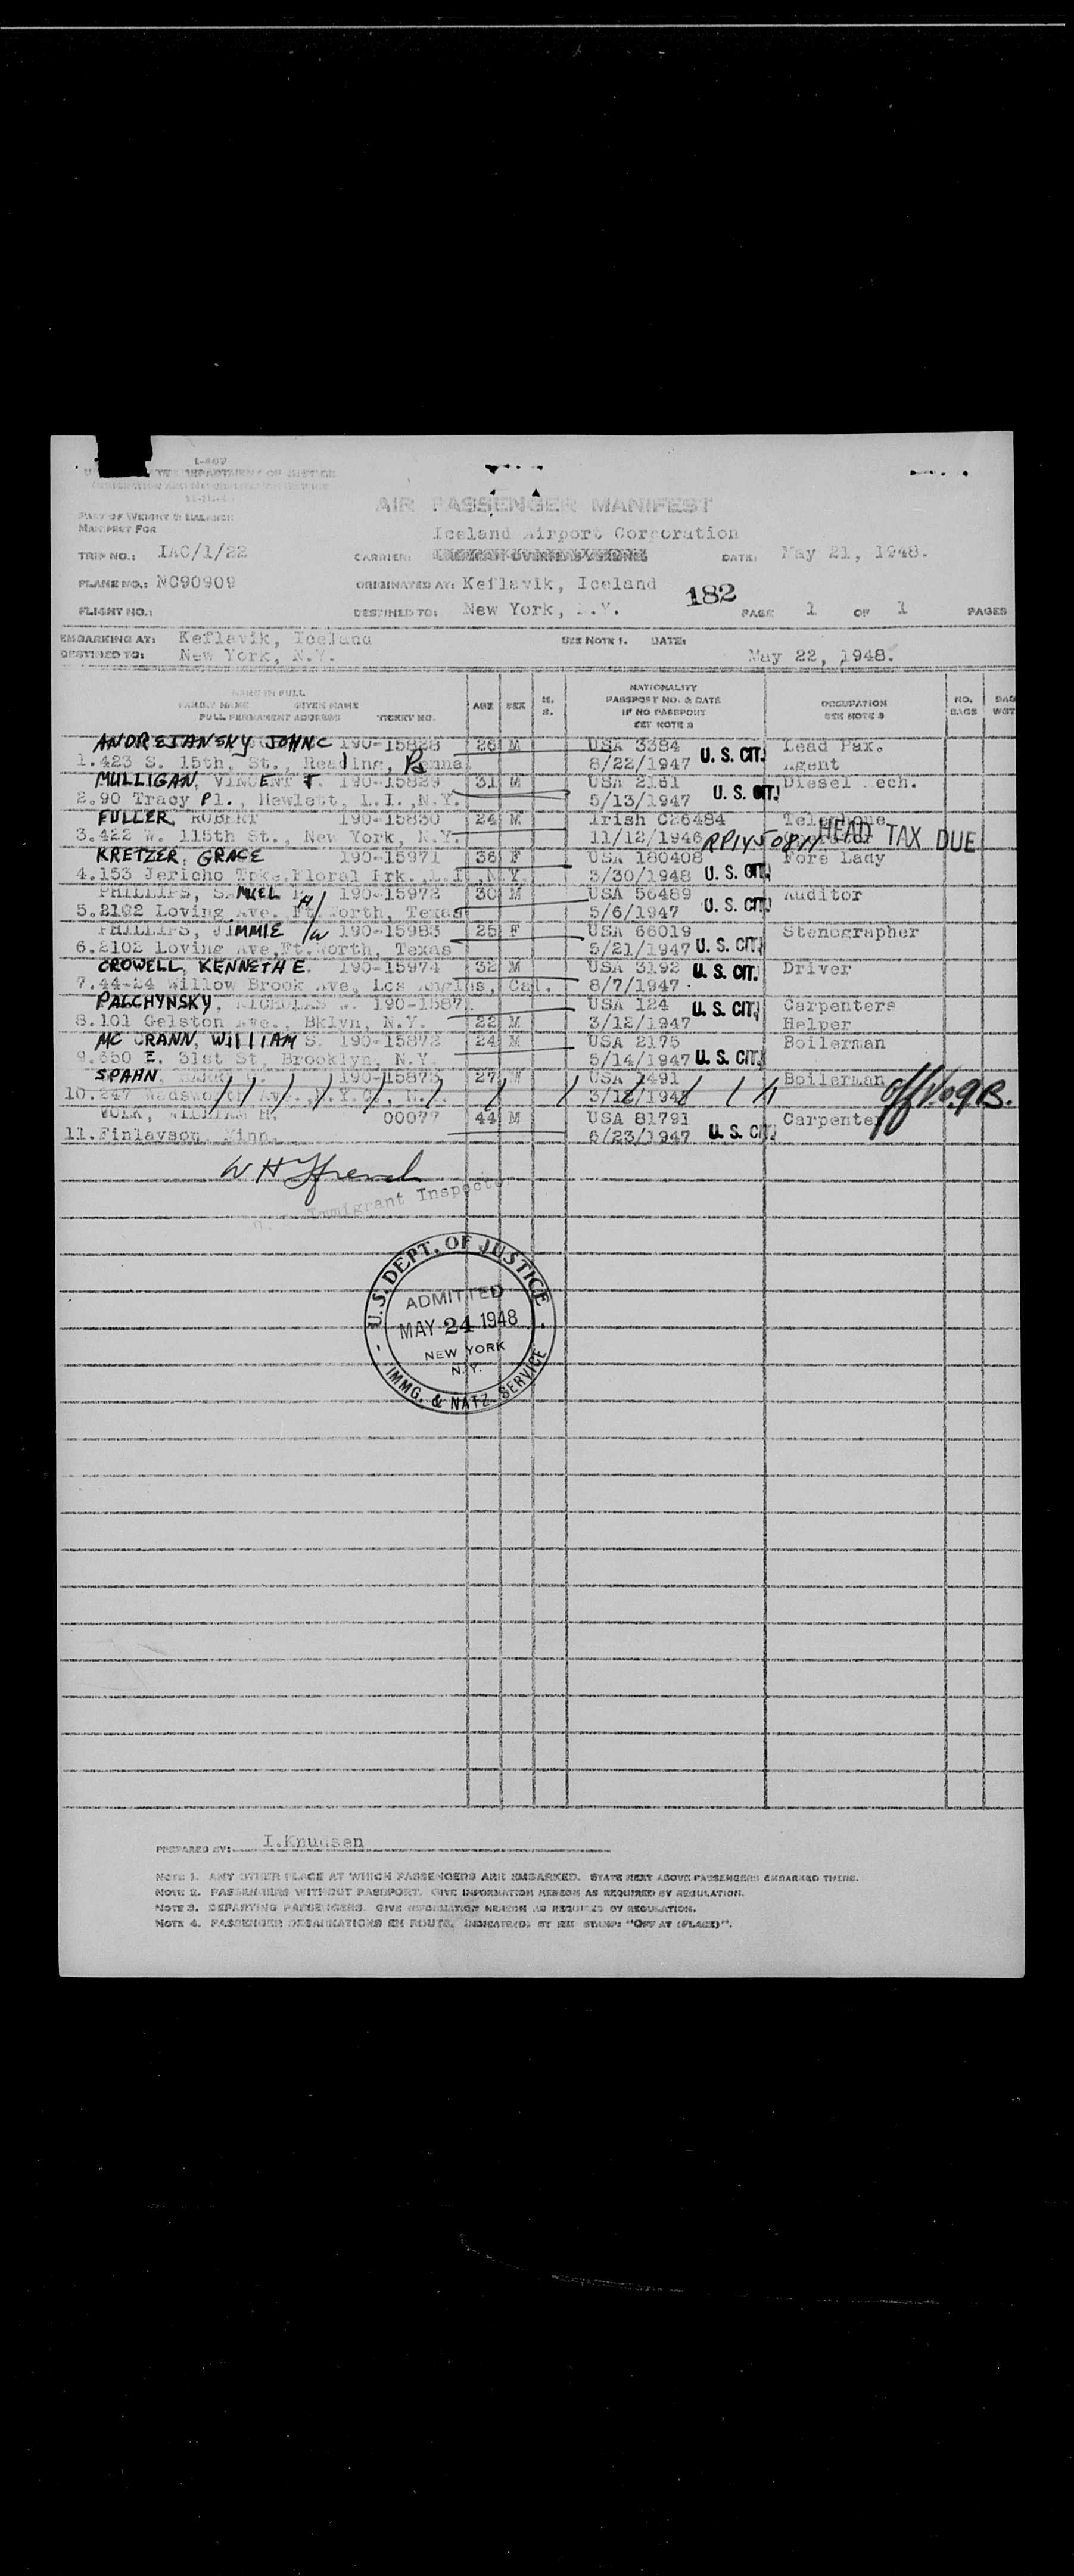 I-467
DEPARTMENT OF JUSTICE
AIR PASSENGER MANIFEST
PART OF WEIGHT & BALANCE
MANIFEST FOR
Iceland Airport Corporation
TRIP NO.: IAC/1/22 CARRIER: DATE: May 21, 1948.
PLANE NO.: NC90909 ORIGINATED AT: Keflavik, Iceland
182
FLIGHT NO.: DESTINED TO: New York, N.Y. PAGE 1 OF 1 PAGES
EMBARKING AT: Keflavik, Iceland SEE NOTE 1. DATE:
DESTINED TO: New York, N.Y. May 22, 1948.
NAME IN FULL
FAMILY NAME GIVEN NAME
FULL PERMANENT ADDRESS TICKET NO. AGE SEX M. S. NATIONALITY PASSPORT NO. & DATE IF NO PASSPORT SEE NOTE 2 OCCUPATION SEE NOTE 3 NO. BAGS BAG WGT
ANDREJANSKY JOHN C 190-15828 26 M USA 3384 U. S. CIT. Lead Pax.
1.423 S. 15th, St., Reading, Penna 8/22/1947 Agent
MULLIGAN, VINCENT J. 190-15829 31 M USA 2161 U. S. CIT. Diesel Mech.
2.90 Tracy Pl., Hewlett, L.I.,N.Y. 5/13/1947
FULLER, ROBERT 190-15830 24 M Irish C26484 Telephone
3.422 W. 115th St., New York, N.Y. 11/12/1946 HEAD TAX DUE
KRETZER, GRACE 190-15971 36 F USA 180408 Fore Lady
4.153 Jericho Tpke.Floral Prk.,L.I.,N.Y. 3/30/1948 U. S. CIT.
PHILLIPS, SAMUEL H/ 190-15972 30 M USA 56489 Auditor
5.2102 Loving Ave. Ft.Worth, Texas 5/6/1947 U. S. CIT.
PHILLIPS, JIMMIE /W 190-15983 25 F USA 66019 Stenographer
6.2102 Loving Ave,Ft.Worth, Texas 5/21/1947 U. S. CIT.
CROWELL, KENNETH E. 190-15974 32 M USA 3192 U. S. CIT. Driver
7.44-24 Willow Brook Ave, Los Angles, Cal. 8/7/1947
PALCHYNSKY, NICHOLAS 190-1587 USA 124 U. S. CIT. Carpenters
8.101 Gelston Ave., Bklyn, N.Y. 22 M 3/12/1947 Helper
MC CRANN, WILLIAM S. 190-15872 24 M USA 2175 Boilerman
9.650 E. 31st St, Brooklyn, N.Y. 5/14/1947 U. S. CIT.
SPAHN, 190-15873 27 M USA 1491 Boilerman
10.247 Wadsworth Ave., 3/12/1948
VOLK, WILLIAM H. 00077 44 M USA 81791 Carpenter
11.Finlayson, Minn. 6/23/1947 U. S. CIT.
Immigrant Inspector
U.S. DEPT. OF JUSTICE
ADMITTED
MAY 24 1948
NEW YORK
N.Y.
IMMG. & NATZ. SERVICE
PREPARED BY: I.Knudsen
NOTE 1. ANY OTHER PLACE AT WHICH PASSENGERS ARE EMBARKED. STATE NEXT ABOVE PASSENGERS EMBARKED THERE.
NOTE 2. PASSENGERS WITHOUT PASSPORT. GIVE INFORMATION HEREON AS REQUIRED BY REGULATION.
NOTE 3. DEPARTING PASSENGERS. GIVE INFORMATION HEREON AS REQUIRED BY REGULATION.
NOTE 4. PASSENGER DEBARKATIONS EN ROUTE, BY "OFF AT (PLACE)".